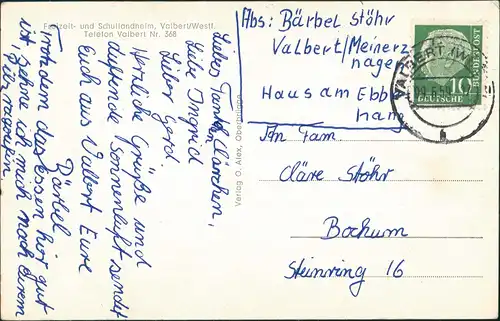 Freizeit- und Schullandheim, Valbert/Westf.
Telefon Valbert Nr. 368
Liebes Tantchen Klärchen,
Liebe Ingrid
Lieber Gerd.
Herzliche Grüße und
duftende Sonnenluft sendet
Euch aus Valbert Eure
Bärbel
Trotzdem das Essen hier gut
ist, sehne ich mich nach Eurem
Verlag O. Alex, Oberhruppe
Abs: Bärbel Stöhr
Valbert/Meinerz
hagen
Haus am Ebbe
hang
An Fam.
Cläre Stöhr
Bochum
Steinring 16
VALBERT
10
DEUTSCHE
BUNDESPOST
b